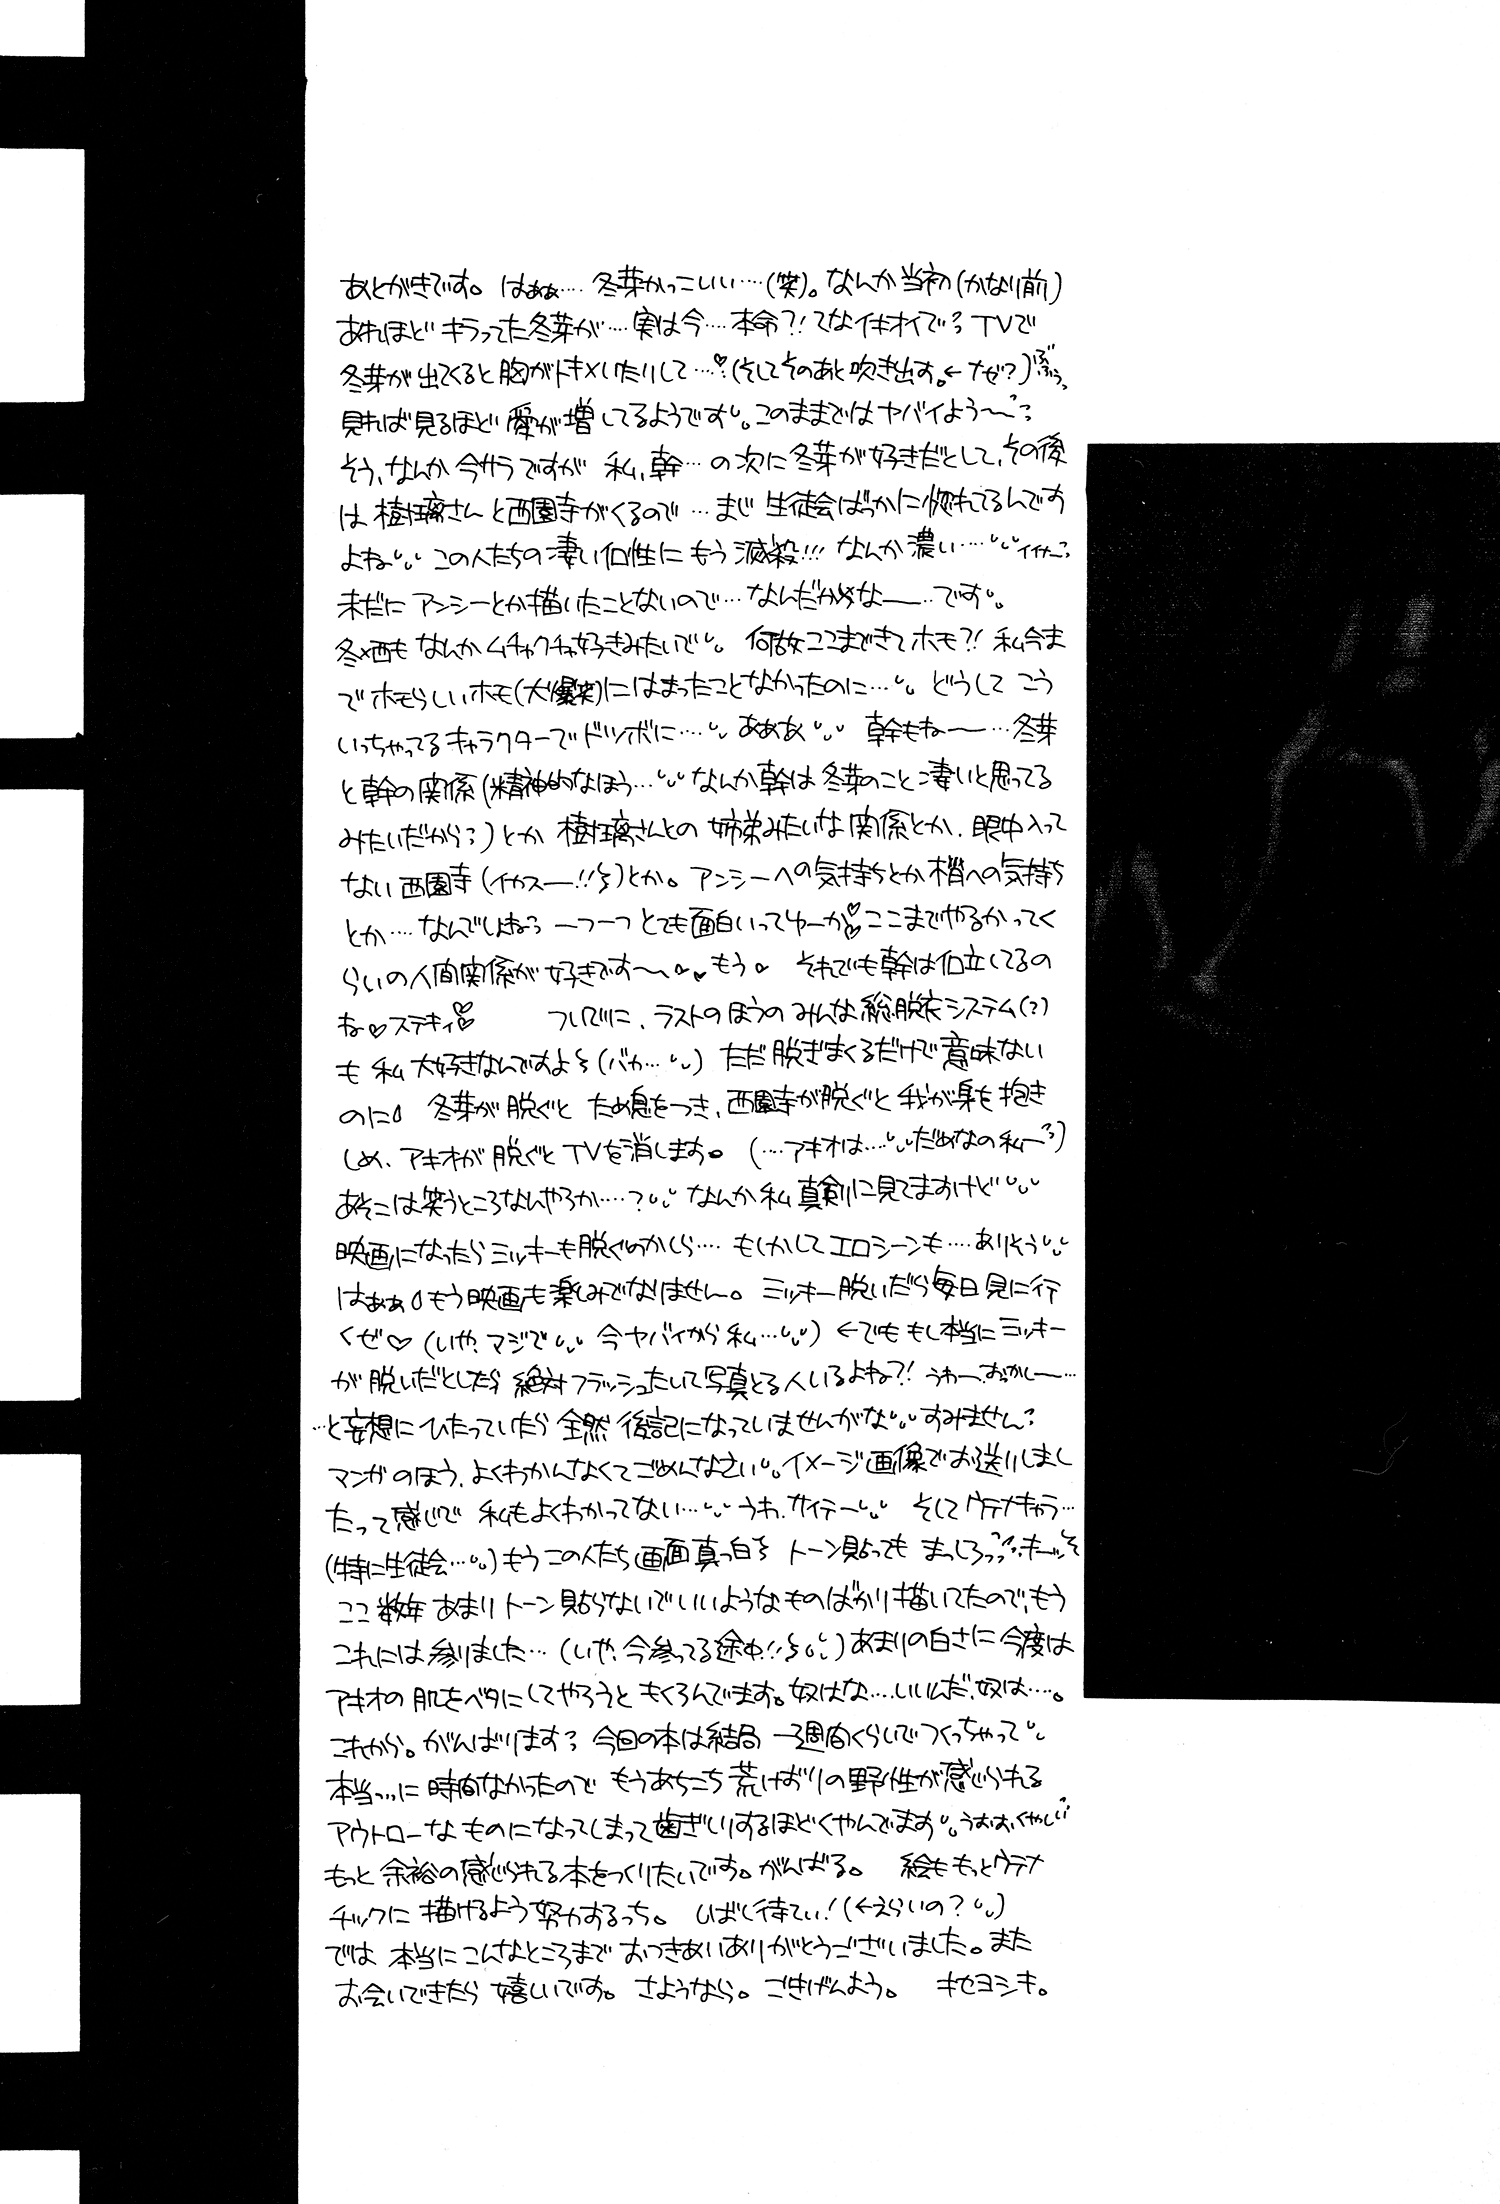 あとがきです。はぁぁ…. 冬芽かっこいい….(笑)。なんか当初(かなり前)
あれほどキラってた冬芽が….実は今….本命?! てなイキオイで TVで
冬芽が出てくると胸がトキメいたりして…♡(そしてそのあと吹き出す。←ナゼ?)
見れば見るほど愛が増してるようです。このままではヤバイよう〜
そう、なんか今サラですが 私、幹…の次に冬芽が好きだとして、その後
は樹璃さんと西園寺がくるので…まじ生徒会ばっかに惚れてるんです
よね この人たちの凄い個性にもう滅殺!!! なんか濃い….
未だにアンシーとか描いたことないので…なんだかなー…です。
冬×西もなんかムチャクチャ好きみたいで 何故ここまできてホモ?! 私今ま
でホモらしいホモ(大爆笑)にはまったことなかったのに… どうして こう
いっちゃってるキャラクターでドツボに…. あぁあ 幹もねー…冬芽
と幹の関係(精神的なほう… なんか幹は冬芽のこと凄いと思ってる
みたいだから)とか 樹璃さんとの姉弟みたいな関係とか、眼中入って
ない西園寺(イカスー!!)とか。アンシーへの気持ちとか梢への気持ち
とか….なんでしょね 一つ一つとても面白いってゆーか♡ここまでやるかってく
らいの人間関係が好きです〜 もう それでも幹は個立してるの
ね♡ステキィ♡ ついでに、ラストのほうのみんな総脱衣システム(?)
も私大好きなんですよ(バカ…) ただ脱ぎまくるだけで意味ない
のに 冬芽が脱ぐとため息をつき、西園寺が脱ぐと我が身を抱き
しめ、アキオが脱ぐとTVを消します。(….アキオは….だめなの私ー)
あそこは笑うところなんやろか….? なんか私真剣に見てますけど
映画になったらミッキーも脱ぐのかしら…. もしかしてエロシーンも….ありそう
はぁぁ もう映画も楽しみでなりません。ミッキー脱いだら毎日見に行
くぜ♡(いや、マジで 今ヤバイから私…)←でももし本当にミッキー
が脱いだとしたら絶対フラッシュたいて写真とる人いるよね?! うわー、おっかしー…
…と妄想にひたっていたら全然後記になっていませんがな すみません
マンガのほう、よくわかんなくてごめんなさい。イメージ画像でお送りしまし
たって感じで 私もよくわかってない… うわ、サイテー そしてウテナキャラ…
(特に生徒会…)もうこの人たち画面真っ白 トーン貼っても まっしろっ
ここ数年あまりトーン貼らないでいいようなものばかり描いてたので、もう
これには参りました…(いや、今参ってる途中!!)あまりの白さに今度は
アキオの肌をベタにしてやろうともくろんでます。奴はな….いいんだ、奴は….。
これから。がんばります 今回の本は結局一週間くらいでつくっちゃって
本当…に時間なかったので もうあちこち荒けずりの野性が感じられる
アウトローなものになってしまって歯ぎしりするほどくやんでます。うおお、くやしい
もっと余裕の感じられる本をつくりたいです。がんばる。 絵ももっとウテナ
チックに描けるよう努力するっち。 しばし待てぃ!(←えらいの?)
では本当にこんなところまでおつきあいありがとうございました。また
お会いできたら嬉しいです。さようなら。ごきげんよう。 キセヨシキ。